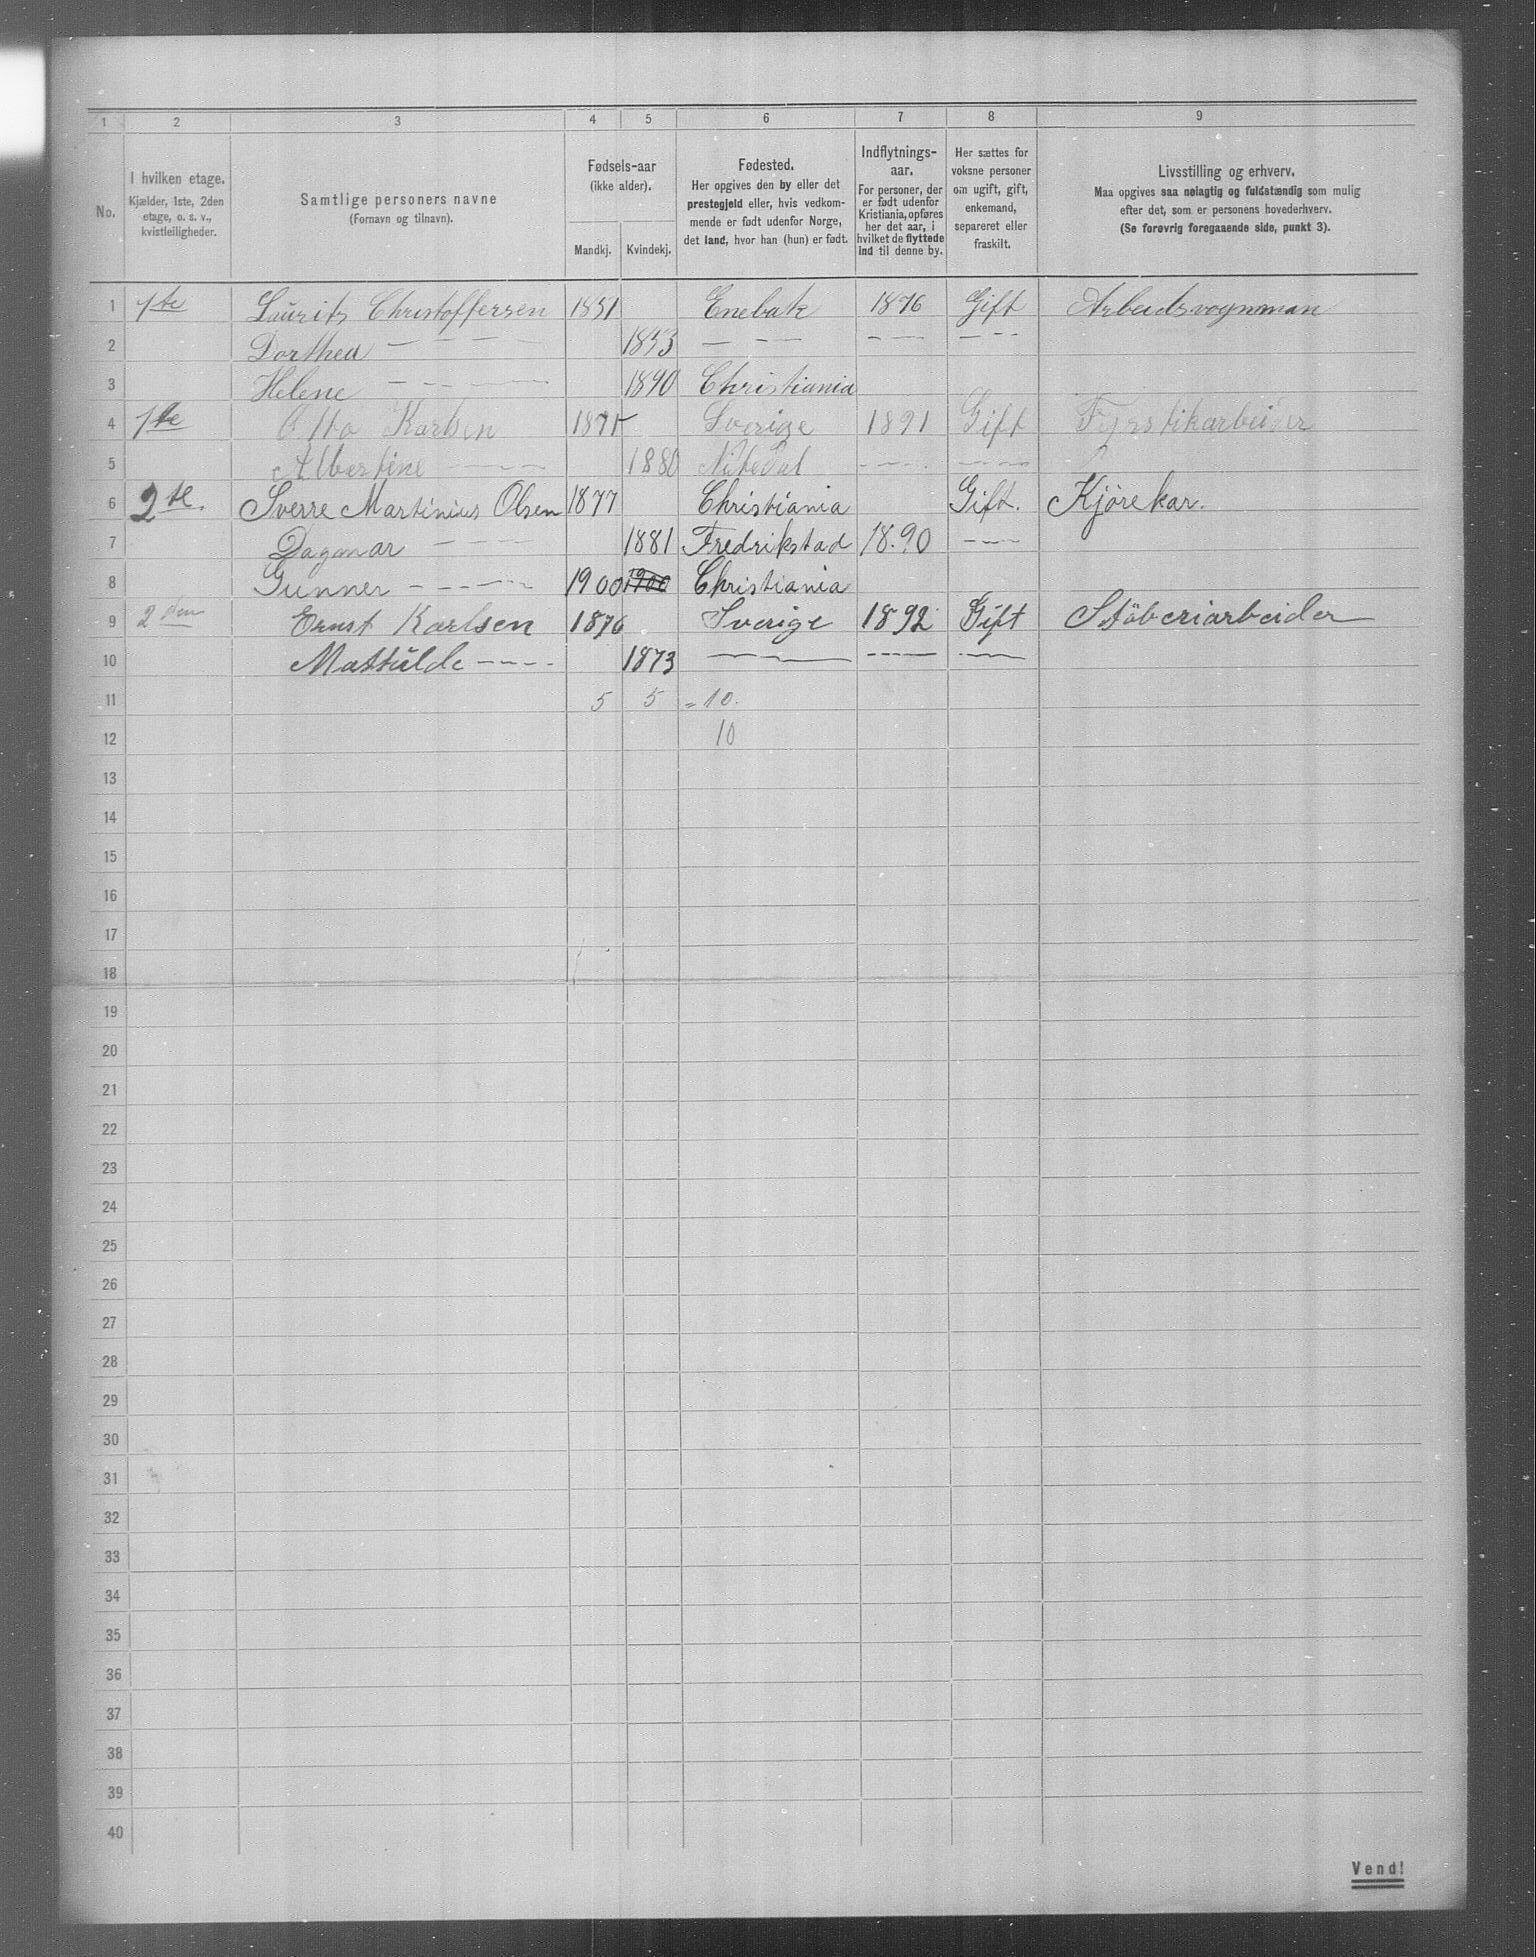 1 2 3 4 5 6 7 8 9
No.
I hvilken etage.
Kjælder, 1ste, 2den
etage, o. s. v.,
kvistleiligheder.
Samtlige personers navne
(Fornavn og tilnavn).
Fødsels-aar
(ikke alder).
Mandkj. Kvindekj.
Fødested.
Her opgives den by eller det
prestegjeld eller, hvis vedkom-
mende er født udenfor Norge,
det land, hvor han (hun) er født.
Indflytnings-
aar.
For personer, der
er født udenfor
Kristiania, opføres
her det aar, i
hvilket de flyttede
ind til denne by.
Her sættes for
voksne personer
om ugift, gift,
enkemand,
separeret eller
fraskilt.
Livsstilling og erhverv.
Maa opgives saa nøiagtig og fuldstændig som mulig
efter det, som er personens hovederhverv.
(Se forøvrig foregaaende side, punkt 3).
1 1te Laurits Christoffersen 1851 Enebak 1876 Gift Arbeidsvognman
2 Dorthea — — — — 1853 — — — — — — — — —
3 Helene — — — — 1890 Christiania
4 1te Otto Karlsen 1875 Sverige 1891 Gift Fyrstikarbeider
5 Albertine — — — 1880 Nitedal — — — — — —
6 2te. Sverre Martinius Olsen 1877 Christiania Gift. Kjörekar.
7 Dagmar — — — 1881 Fredrikstad 18.90 — — —
8 Gunner — — — — 1900 1900 Christiania
9 2den Ernst Karlsen 1876 Sverige 1892 Gift Stöberiarbeider
10 Mathilde — — — — 1873 — — — — — — — — —
11 5 5 = 10.
12 10
13
14
15
16
17
18
19
20
21
22
23
24
25
26
27
28
29
30
31
32
33
34
35
36
37
38
39
40
Vend!